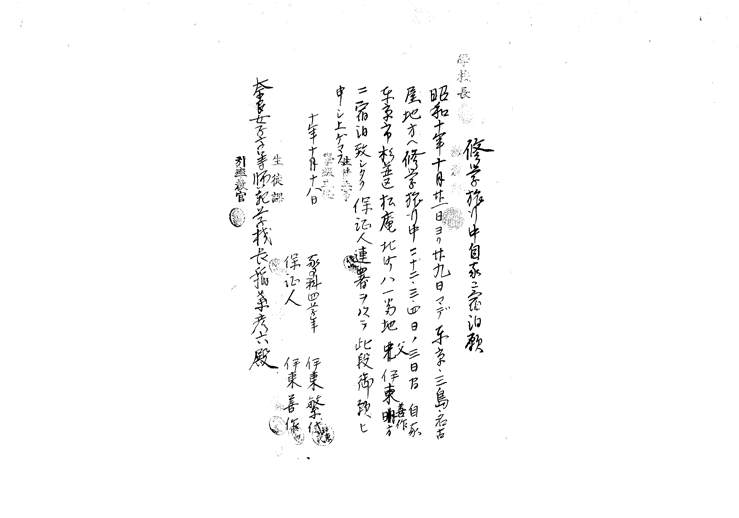 修学旅行中自家ニ宿泊願
学校長
昭和十年十月廿一日ヨリ廿九日マデ東京・三島・名古
屋地方ヘ修学旅行中二十二・三・四日ノ三日間自家
東京市杉並区松庵北町八一番地 父伊東善作方
ニ宿泊致シタク保証人連署ヲ以テ此段御願ヒ
申シ上ゲマス
十年十月十八日
家事科四学年 伊東繁代
保証人 伊東善作
生徒課
引率教官
奈良女子高等師範学校長稲葉彦六殿